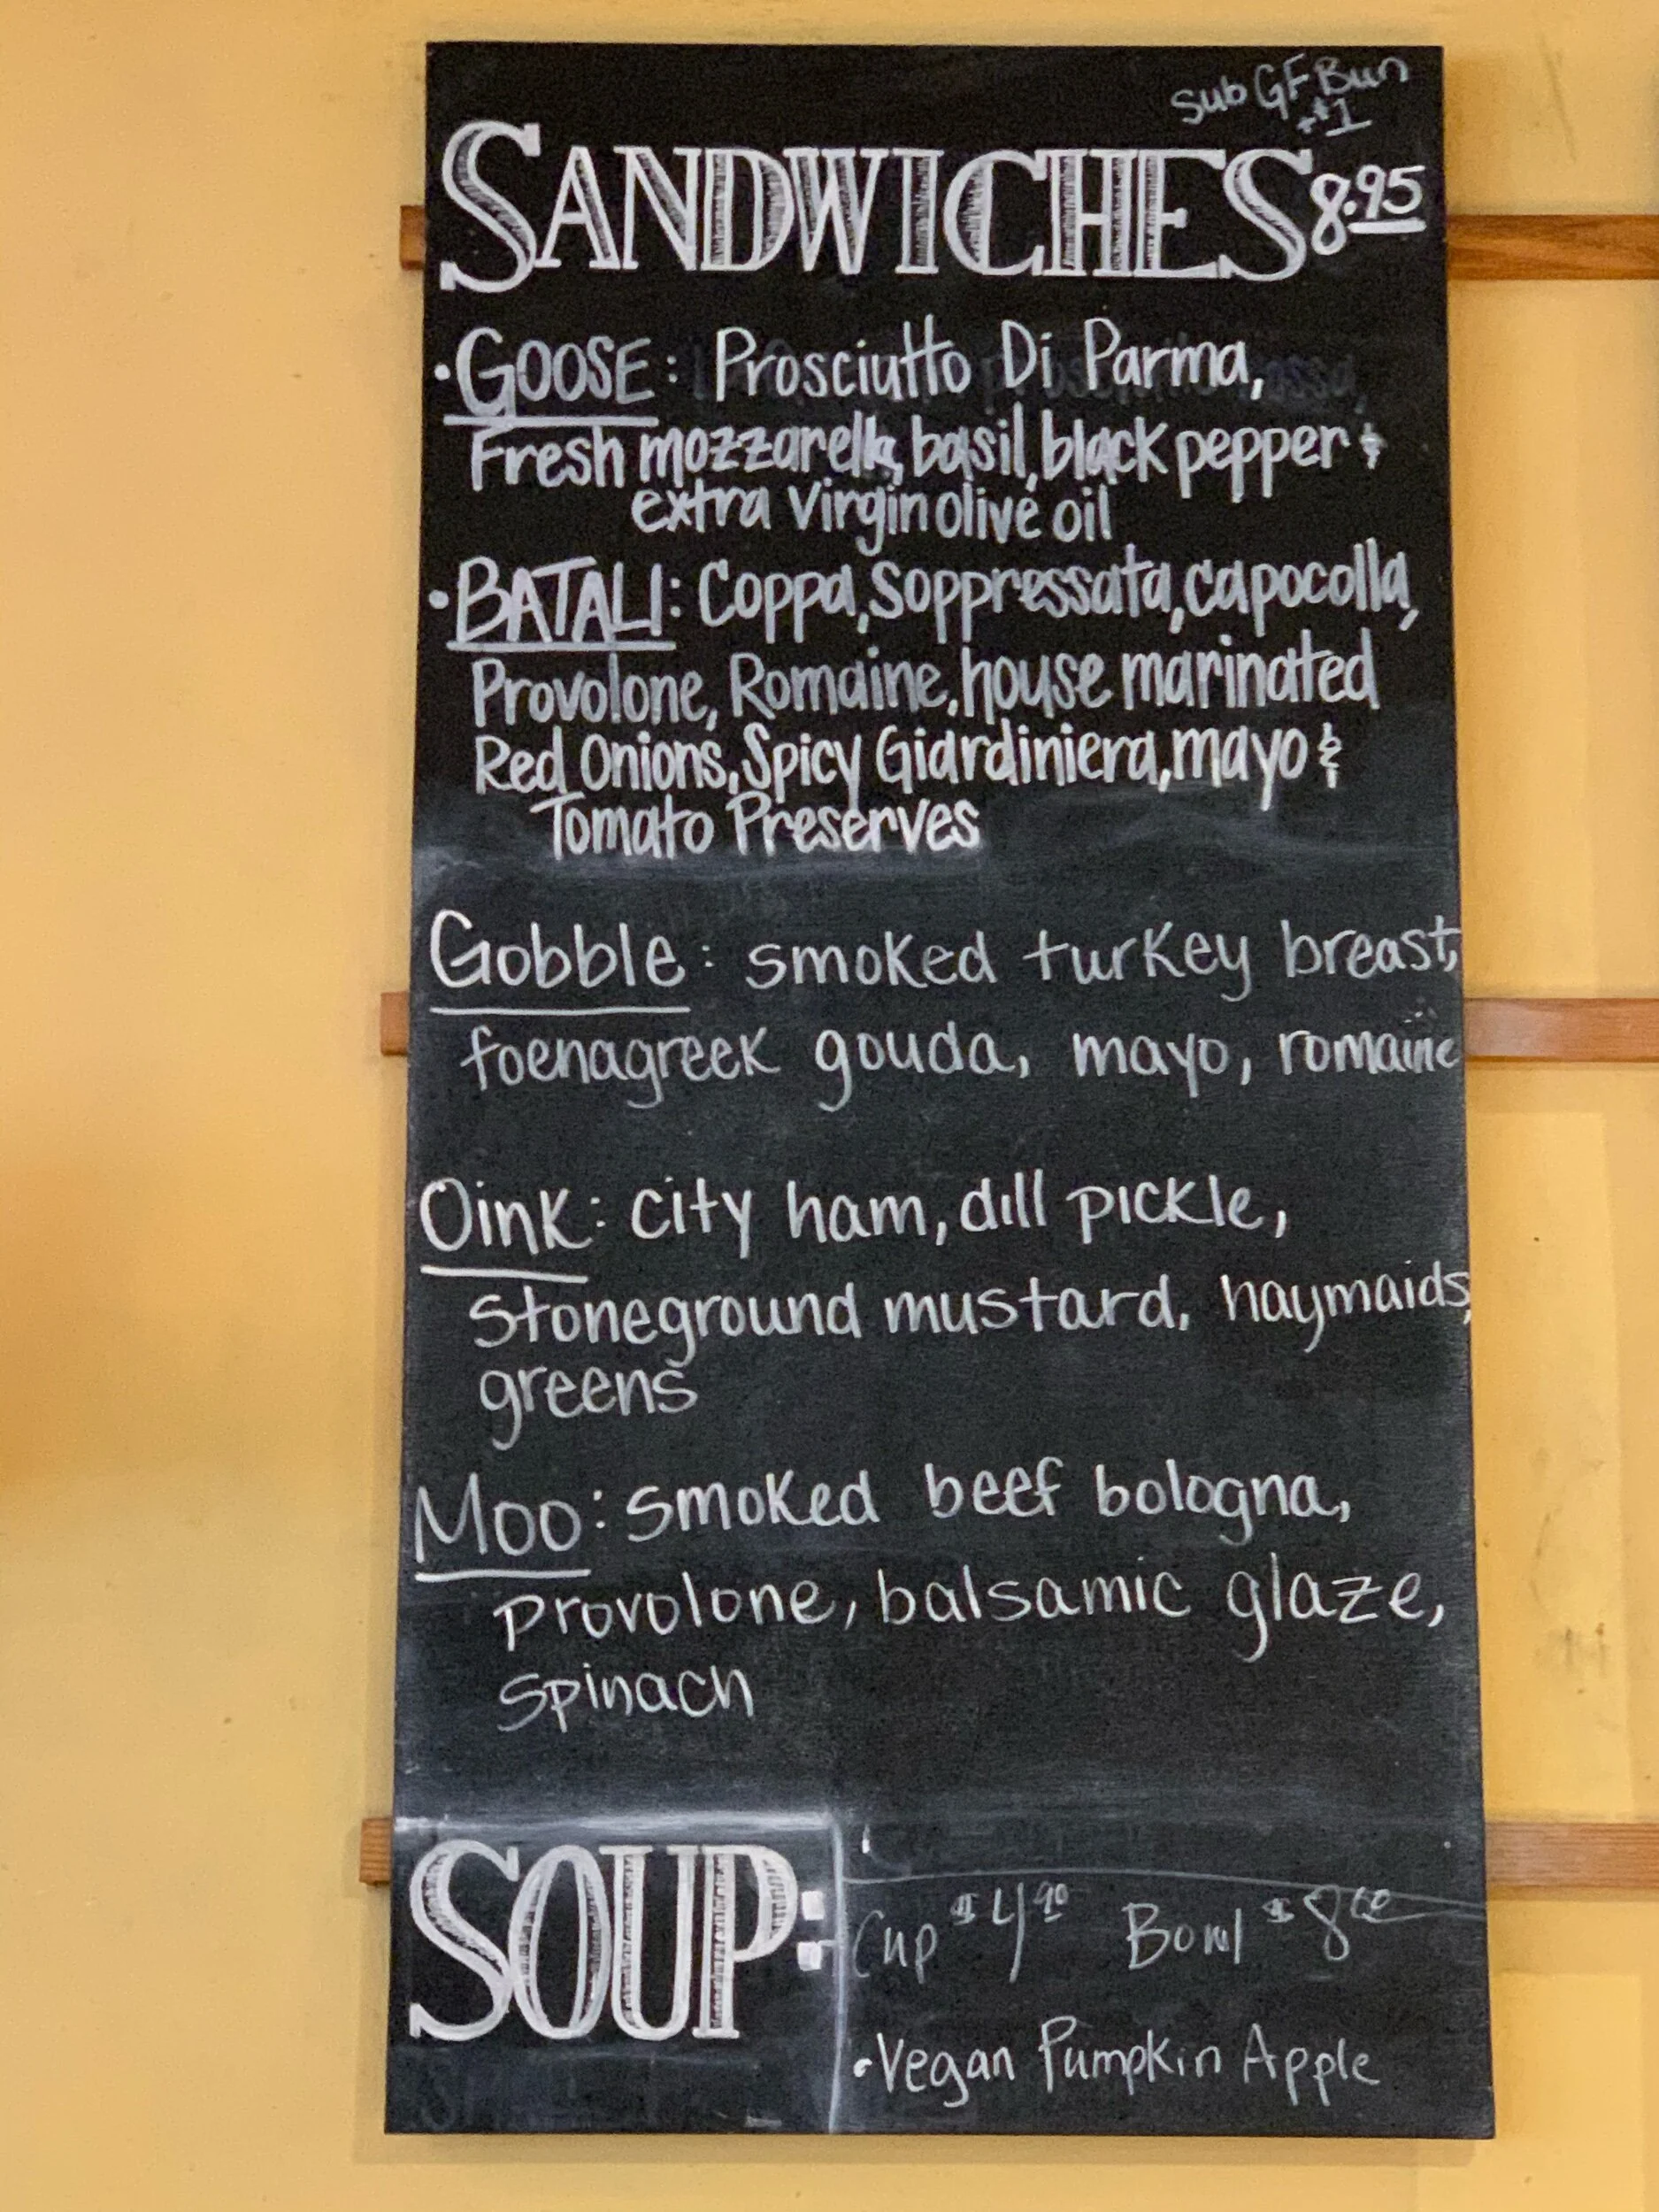 Sub GF Bun
+$1
SANDWICHES 8.95
• GOOSE: Prosciutto Di Parma,
Fresh mozzarella, basil, black pepper &
extra virgin olive oil
• BATALI: Coppa, Soppressata, capocolla,
Provolone, Romaine, house marinated
Red Onions, Spicy Giardiniera, mayo &
Tomato Preserves
Gobble: smoked turkey breast,
foenagreek gouda, mayo, romaine
Oink: city ham, dill pickle,
stoneground mustard, haymaids,
greens
Moo: smoked beef bologna,
provolone, balsamic glaze,
spinach
SOUP:
Cup $4 90 Bowl $8
• Vegan Pumpkin Apple